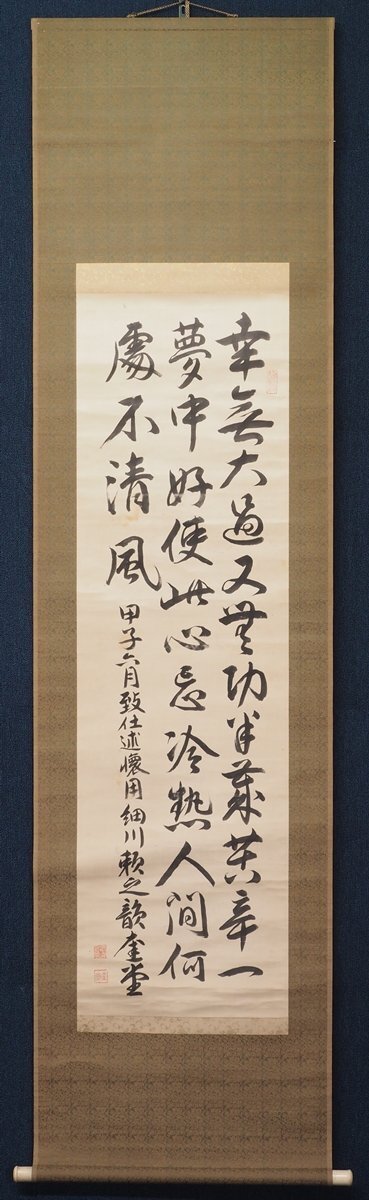 幸無大過又無功半歳苦辛一
夢中好使此心忘冷熱人間何
處不清風 甲子六月致仕述懷用細川頼之韻奎堂